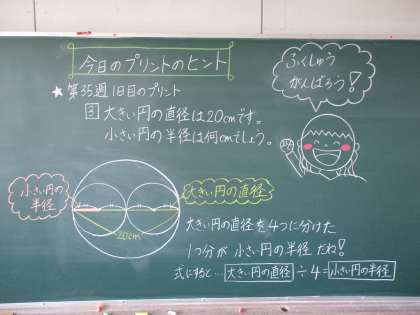 今日のプリントのヒント
★第35週1日目のプリント
③大きい円の直径は20cmです。
小さい円の半径は何cmでしょう。
ふくしゅう
がんばろう!
小さい円の
半径
大きい円の直径
20cm
大きい円の直径を4つに分けた
1つ分が小さい円の半径だね!
式にすると…大きい円の直径÷4=小さい円の半径